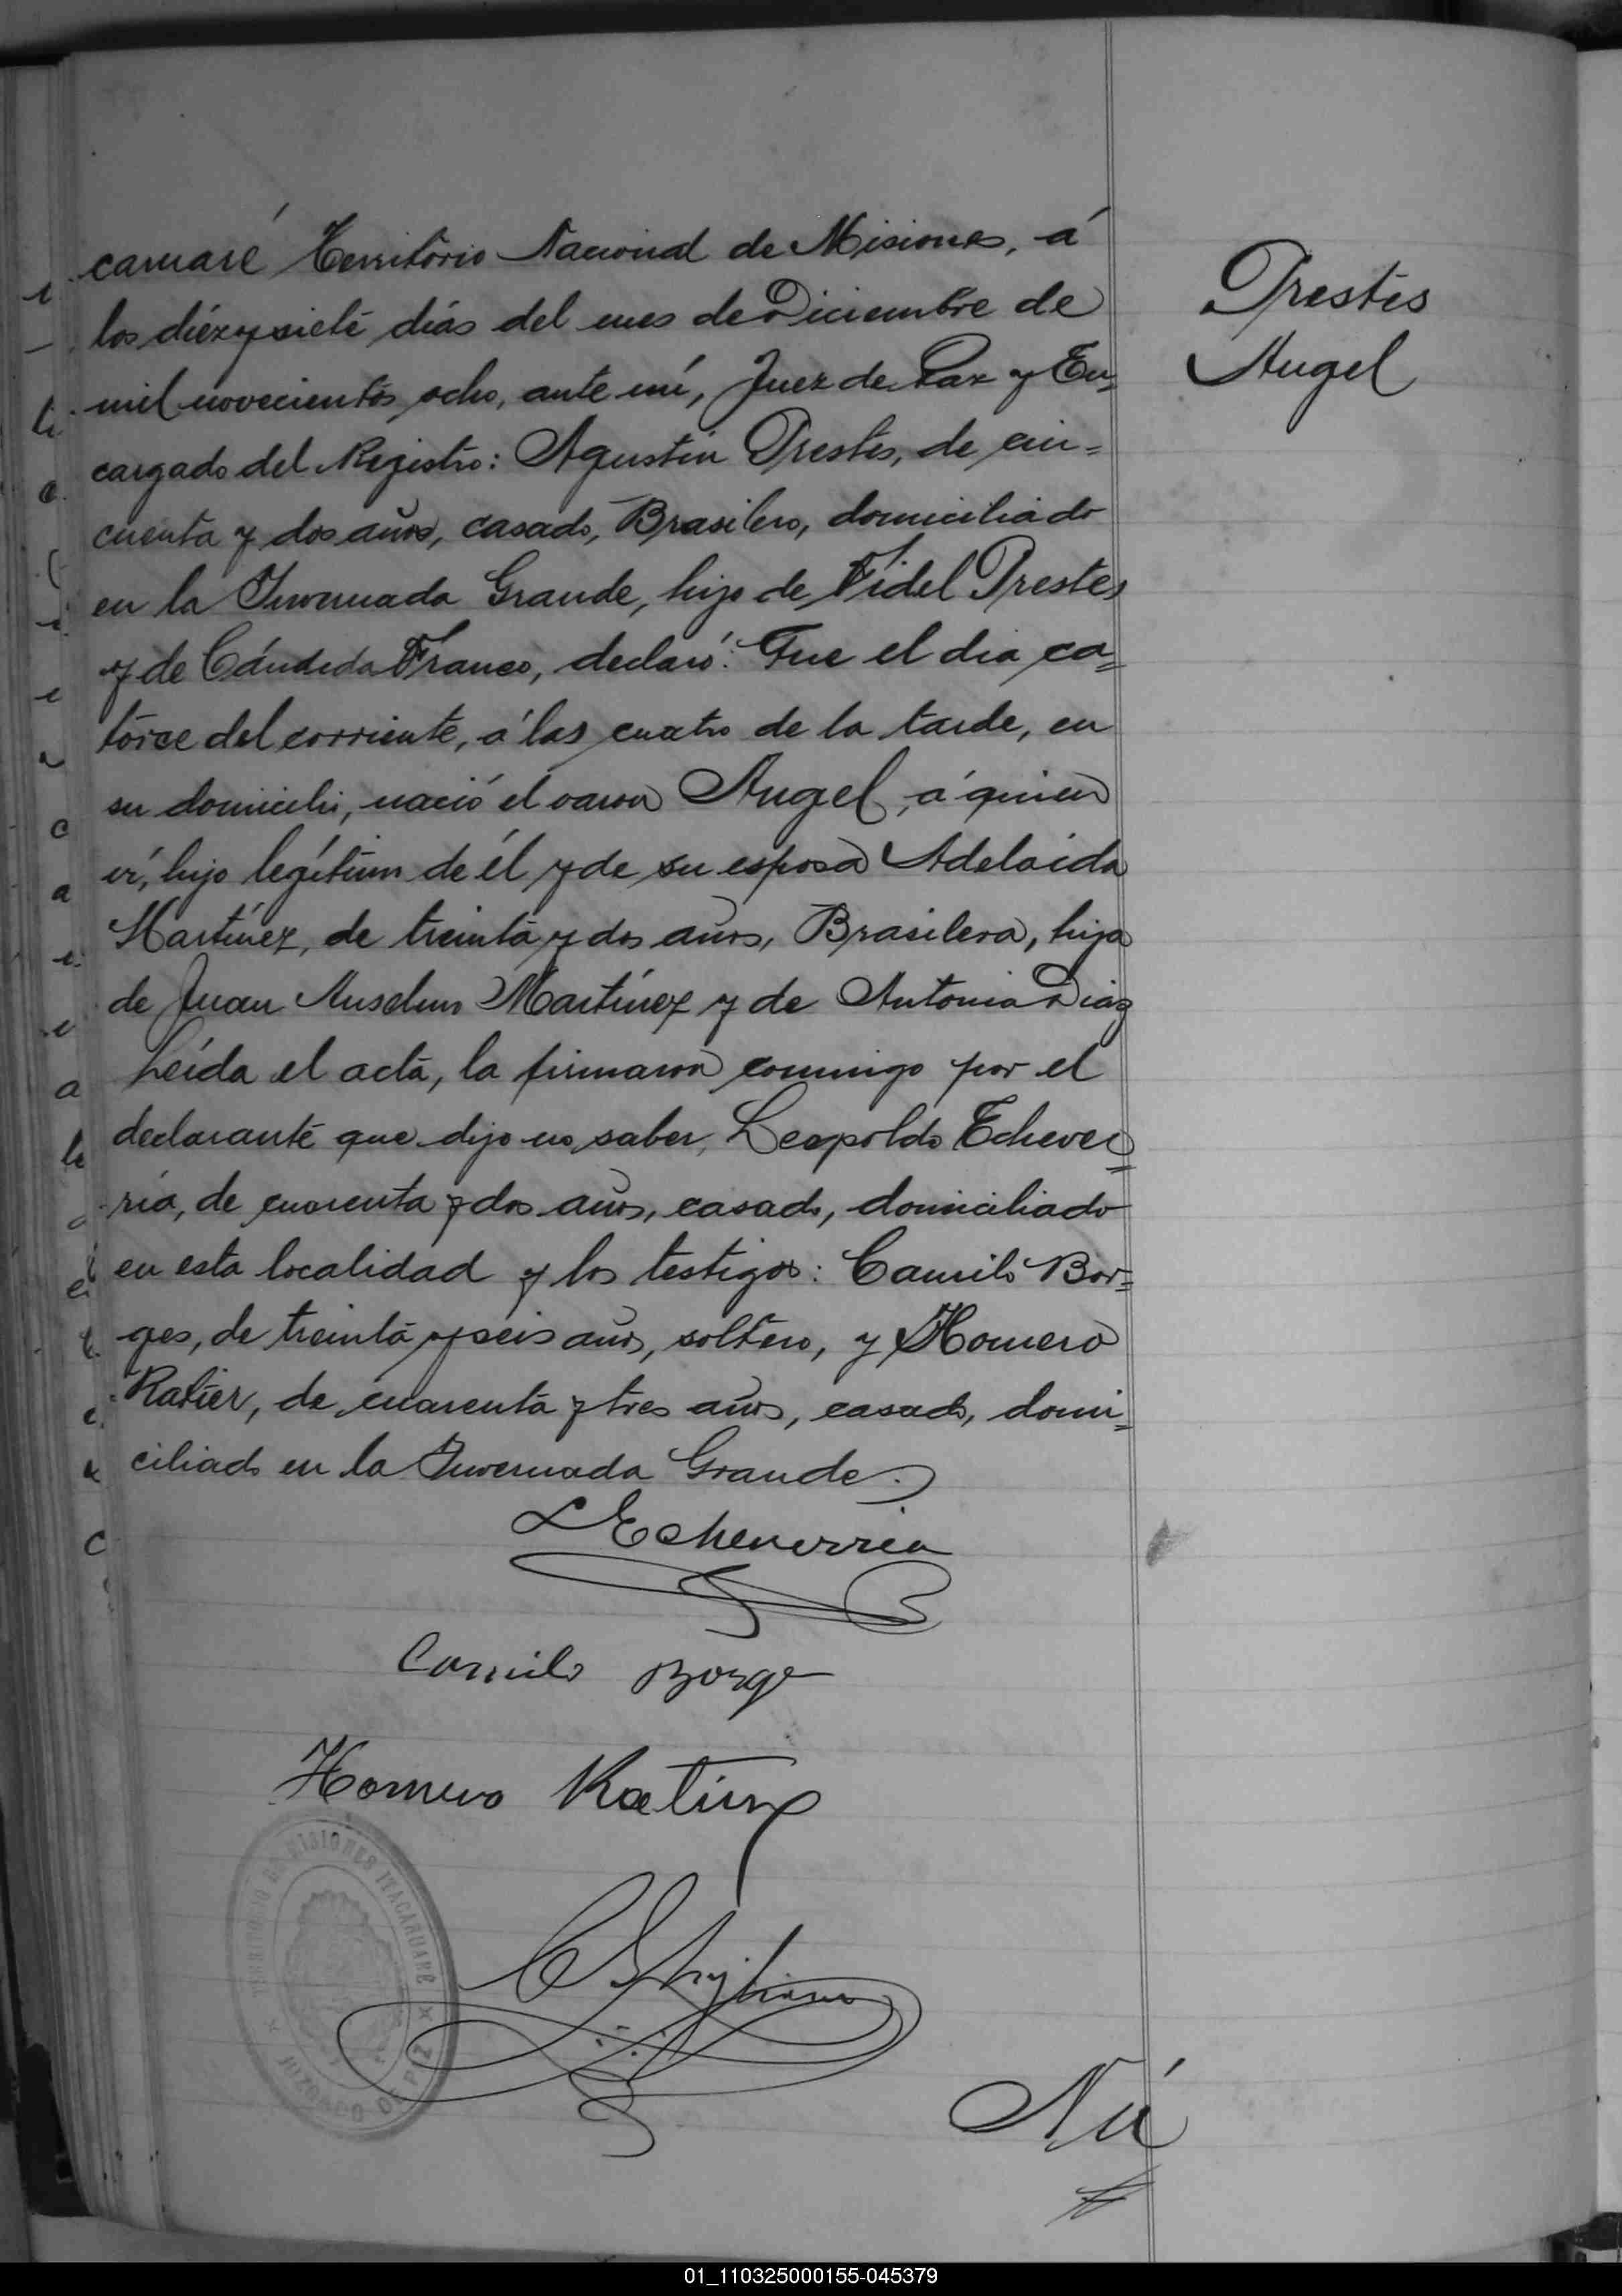 caruaré Territorio Nacional de Misiones, á
los diézysiete días del mes de Diciembre de
mil novecientos ocho, ante mí, Juez de Paz y En=
cargado del Registro: Agustin Prestes, de cin=
cuenta y dos años, casado, Brasilero, domiciliado
en la Invernada Grande, hijo de Fidel Prestes
y de Cándida Franco, declaró: Que el dia ca=
torce del corriente, á las cuatro de la tarde, en
su domicilio, nació el varon Angel, á quien
ví, hijo legítimo de él y de su esposa Adelaida
Martínez, de treinta y dos años, Brasilera, hija
de Juan Anselmo Martínez y de Antonia Diaz
Leída el acta, la firmaron conmigo por el
declarante que dijo no saber, Leopoldo Echever=
ria, de cuarenta y dos años, casado, domiciliado
en esta localidad y los testigos: Camilo Bor=
ges, de treinta y seis años, soltero, y Homero
Ratier, de cuarenta y tres años, casado, domi=
ciliado en la Invernada Grande.
Prestes
Angel
L Echeverria
Camilo Borge
Homero Ratier
TERRITORIO DE MISIONES ITACARUARE
JUZGADO DE PAZ
Nú
01_110325000155-045379